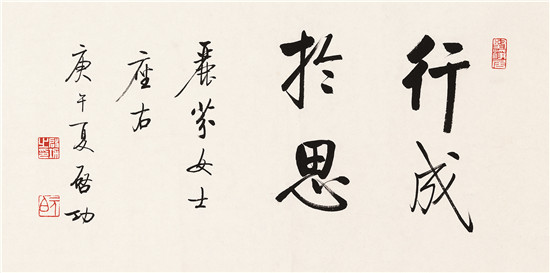 行成
於思
麗芬女士
座右
庚午夏 啓功